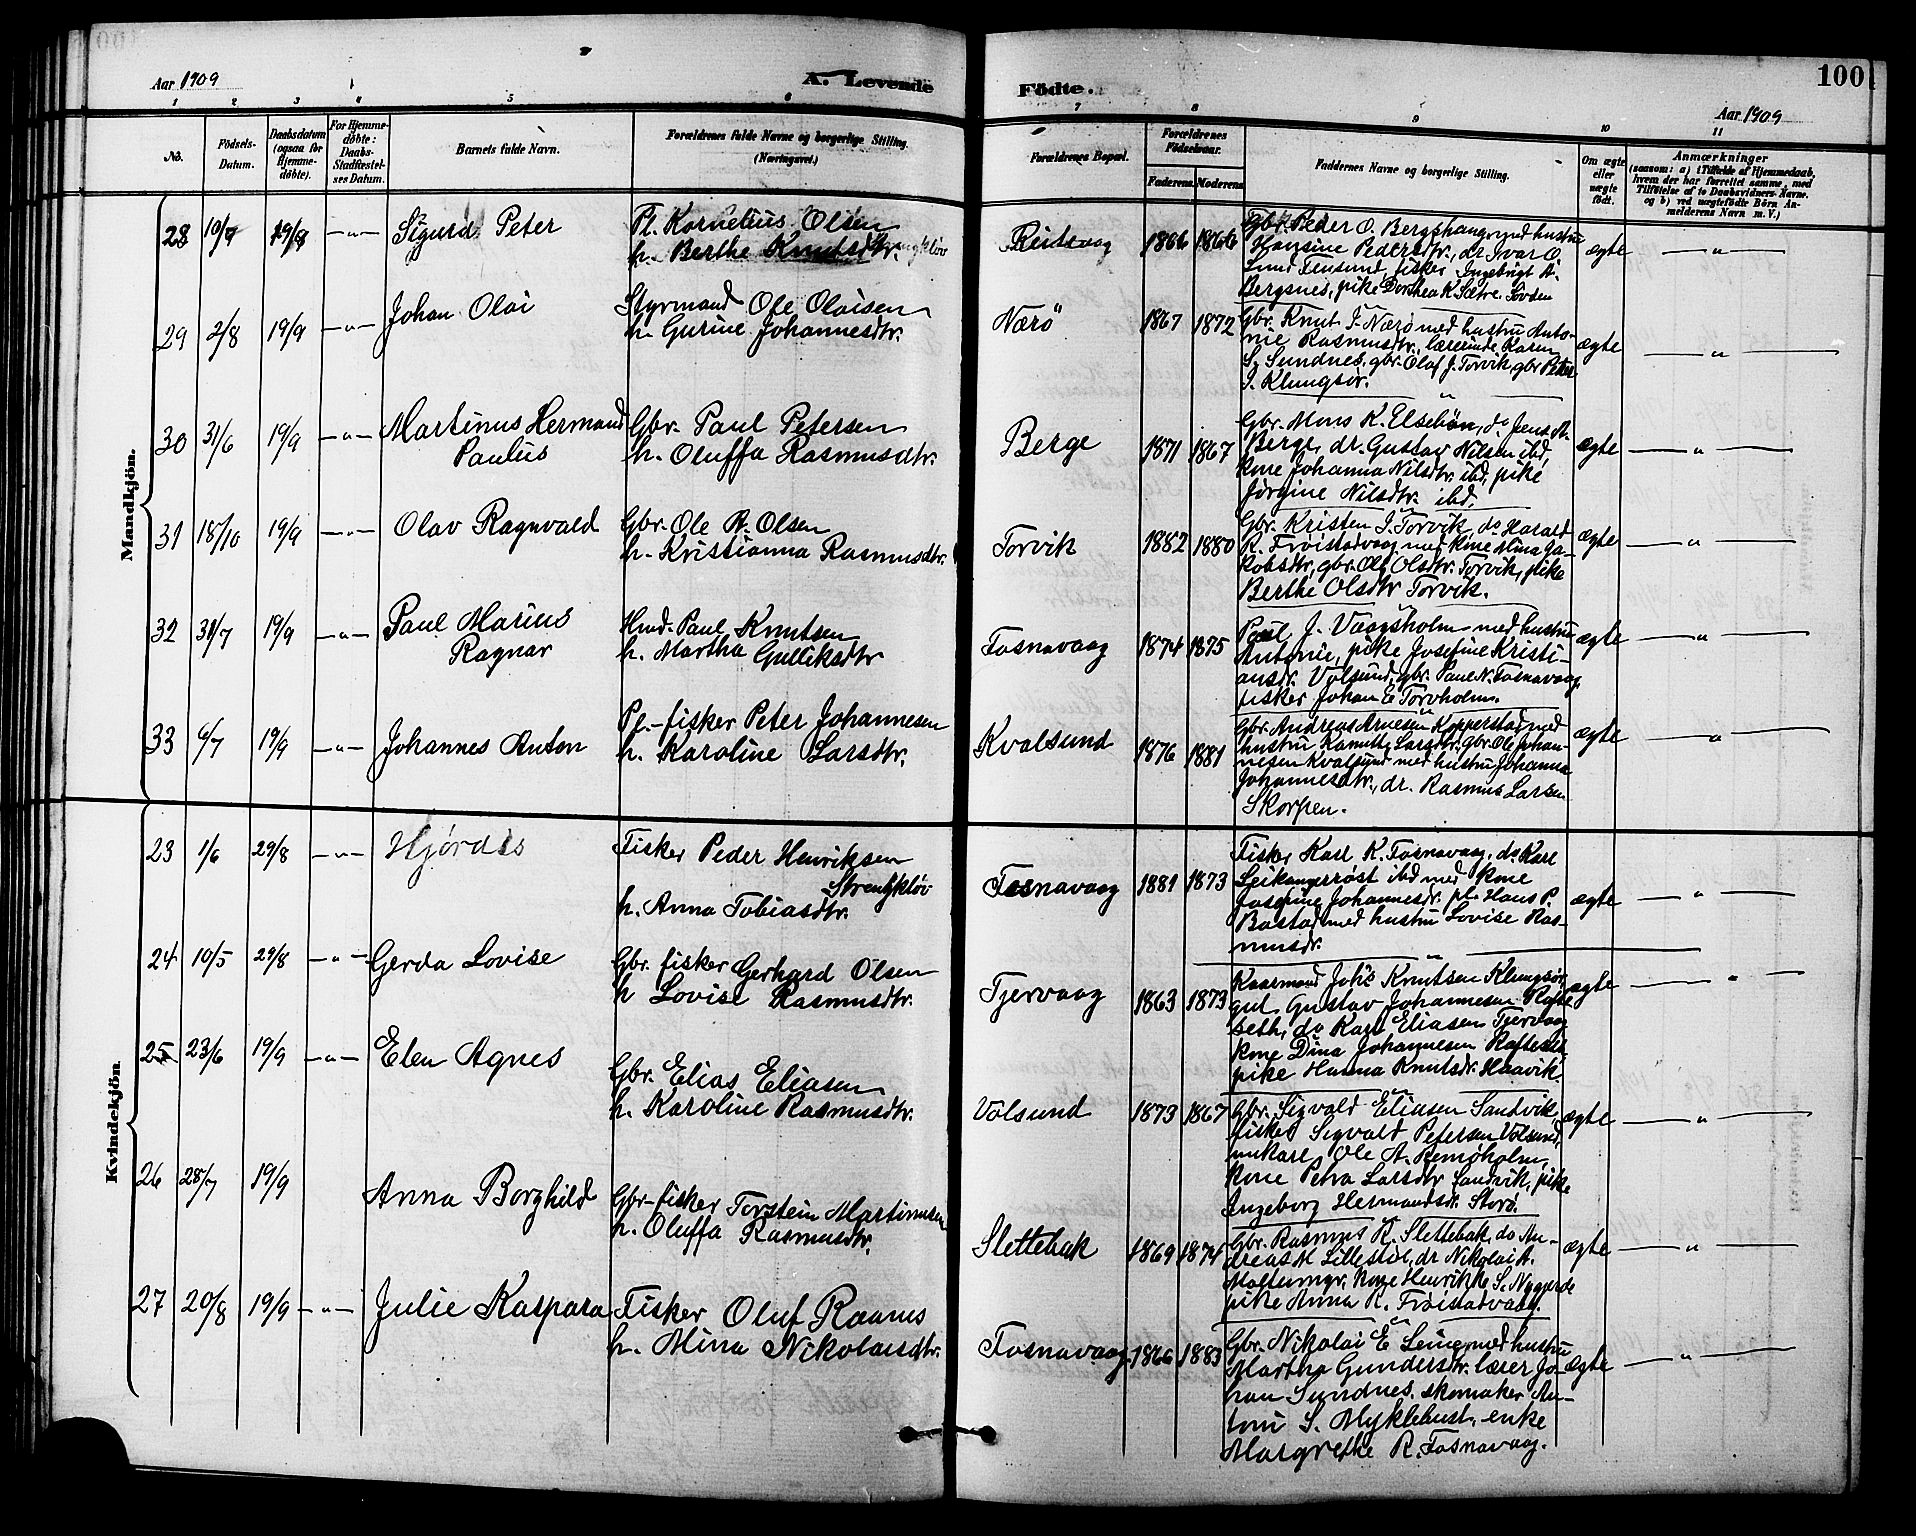 Aar 1909
A. Levende
Födte.
100
Aar 1909
1 2 3 4 5 6 7 8 9 10 11
No.
Födsels-
Datum.
Daabsdatum
(ogsaa for
Hjemme-
døbte).
For Hjemme-
døbte:
Daabs-
Stadfæstel-
ses Datum.
Barnets fulde Navn.
Forældrenes fulde Navne og borgerlige Stilling.
(Næringsvei.)
Forældrenes Bopæl.
Forældrenes
Födselsaar.
Faderens
Moderens
Faddernes Navne og borgerlige Stilling.
Om ægte
eller
uægte
født.
Anmærkninger
(saasom: a) i Tilfælde af Hjemmedaab,
hvem der har forrettet samme, med
Tilföielse af to Daabsvidners Navne,
og b) ved uægtefödte Börn An-
melderens Navn m. V.)
Mandkjön.
28 10/7 29/8 —"— Sigurd Peter
Pl. Kornelius Olsen
h. Berthe Knutsdtr.
1866 1866
Gbr. Peder O. Bergshaug med hustru
Hansine Pedersdtr., dr. Ivar O.
Lund Flusund, fisker Ingebrigt A.
Bergsnes, pike Dorthea K. Sætre.
ægte — " —
29 2/8 19/9 —"— Johan Olai
Styrmand Ole Olaisen
h. Gurine Johannesdtr.
Nærö 1867 1872
Gbr. Knut J. Nærø med hustru Anto-
nie Rasmusdtr., lærerinde Karen
S. Sundnes, gbr. Olaf J. Torvik, gbr. Peter
I. Klungsør.
ægte — " —
30 31/6 19/9 —"— Martinus Hermand
Paulus
Gbr. Paul Petersen
h. Oluffa Rasmusdtr.
Berge 1871 1867
Gbr. Mons K. Elsebøn, do Jens A.
Berge, dr. Gustav Nilsen ibd,
kone Johanna Nilsdtr. ibd, pike
Jørgine Nilsdtr. ibd.
ægte — " —
31 18/10 19/9 —"— Olav Ragnvald
Gbr. Ole A. Olsen
h. Kristianna Rasmusdtr.
Torvik 1882 1880
Gbr. Kristen J. Torvik, do Harald
R. Frøistadvaag med kone Mina Ja-
kobsdtr, gbr. Ole Olsdtr. Torvik, pike
Berthe Olsdtr Torvik.
ægte — " —
32 31/7 19/9 —"— Paul Marius
Ragnar
Hmd. Paul Knutsen
h. Martha Gulliksdtr
Fosnavaag 1874 1875
Paul J. Vaagsholm med hustru
Antonie, pike Josefine Kristi-
ansdr. Volsund, gbr. Paul N. Fosnavaag,
fisker Johan E. Torvholm.
ægte — " —
33 6/7 19/9 —"— Johannes Anton
Pl.-fisker Peter Johannesen
h. Karoline Larsdtr.
Kvalsund 1876 1881
Gbr. Andreas Arnesen Kopperstad med
hustru Larsdtr, gbr. Ole Johan-
nesen Kvalsund med hustru Johanna
Johannesdtr., dr. Rasmus Larsen
Skorpen.
ægte — " —
Kvindekjön.
23 1/6 29/8 —"— Hjørdis
Fisker Peder Henriksen
h. Anna Tobiasdtr.
Fosnavaag 1881 1873
Fisker Karl K. Fosnavaag, do Karl
Leikangerrøst ibd med kone
Josefine Johannesdr. pl. Hans P.
Bøstad med hustru Lovise Ras-
musdr.
ægte — " —
24 10/5 29/8 —"— Gerda Lovise
Gbr. fisker Gerhard Olsen
h Lovise Rasmusdtr.
Tjervaag 1863 1873
Kaarmand Johs Knutsen Klungsør,
gut Gustav Johannesen Rafte-
seth, do Karl Eliasen Tjervaag
kone Dina Johannesen Rafteset
pike Hanna Knutsdr. Haavik.
ægte — " —
25 23/6 19/9 —"— Elen Agnes
Gbr. Elias Eliasen
h. Karoline Rasmusdtr.
Volsund 1873 1867
Gbr. Sigvald Eliasen Sandvik,
fisker Sigvald Petersen Volsund,
unkarl Ole A. Remøholm,
kone Petra Larsdtr Sandvik, pike
Ingeborg Hermandsdr. Storø.
ægte — " —
26 28/7 19/9 Anna Borghild
Gbr-fisker Torstein Martinusen
h. Oluffa Rasmusdtr.
Slettebak 1869 1874
Gbr. Rasmus R. Slettebak, do An-
dreas M Lillestøl, dr Nikolai A.
kone Henrikke S. Nygjerde
pike Anna R. Frøistadvaag.
ægte — " —
27 20/8 19/9 —"— Julie Kaspara
Fisker Oluf Raanes
h. Mina Nikolaisdtr.
Fosnavaag. 1866 1883
Gbr. Nikolai E Leine med hustru
Martha Gundersdtr. læser Jo-
han Sundnes. skomaker An-
ton S. Myklebust, enke
Margrethe R. Fosnavaag.
ægte — " —